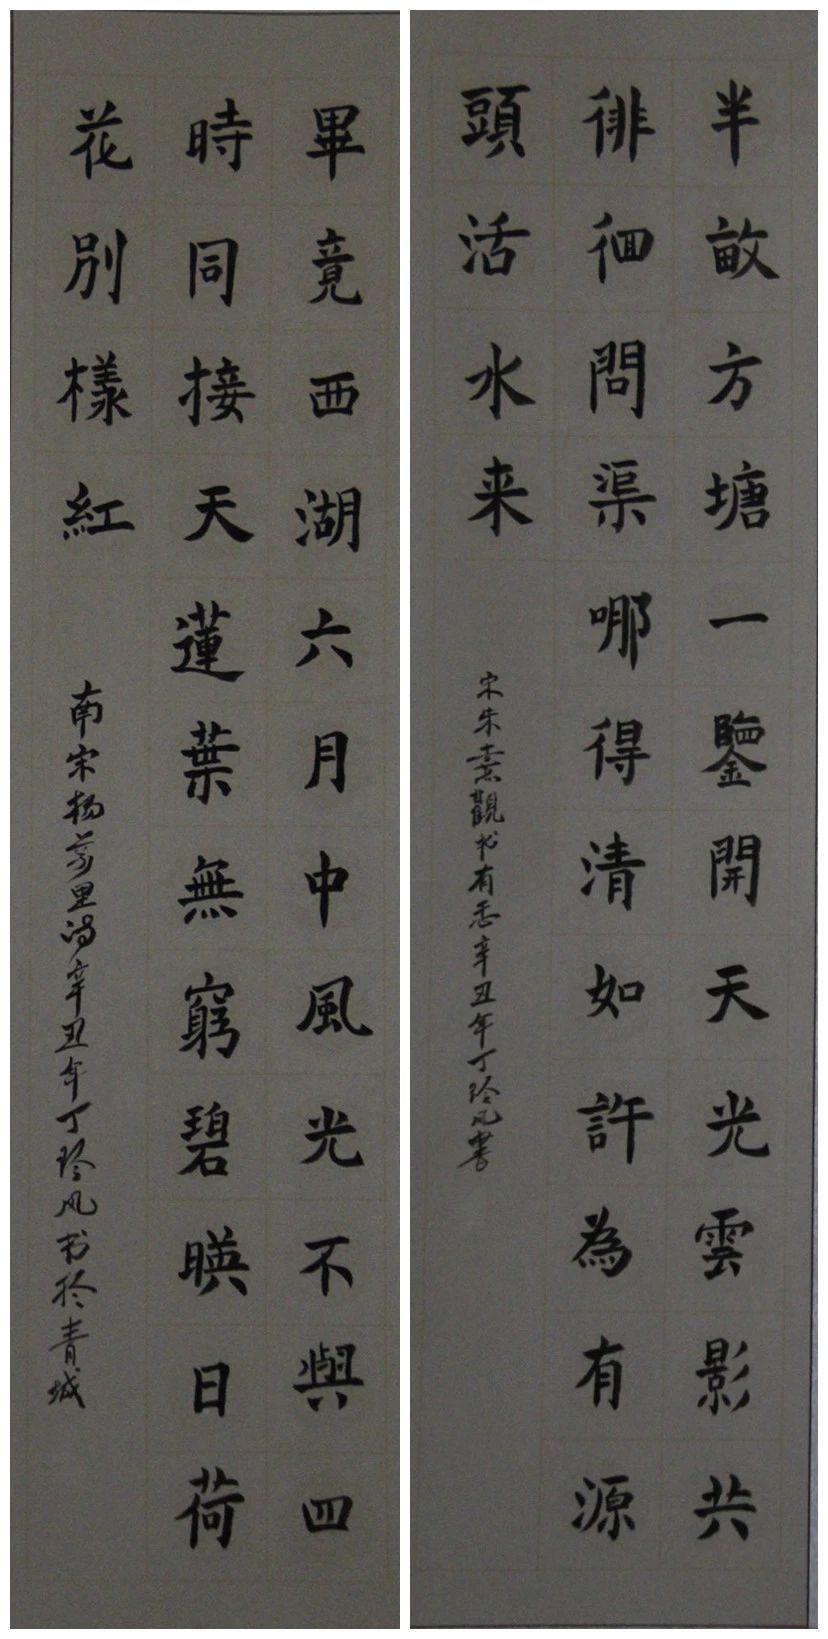 半畝方塘一鑒開天光雲影共
徘徊問渠哪得清如許為有源
頭活水来
宋朱熹觀书有感辛丑年丁玲凤書
畢竟西湖六月中風光不與四
時同接天蓮葉無窮碧暎日荷
花別樣紅
南宋杨萬里诗辛丑年丁玲凤书於青城